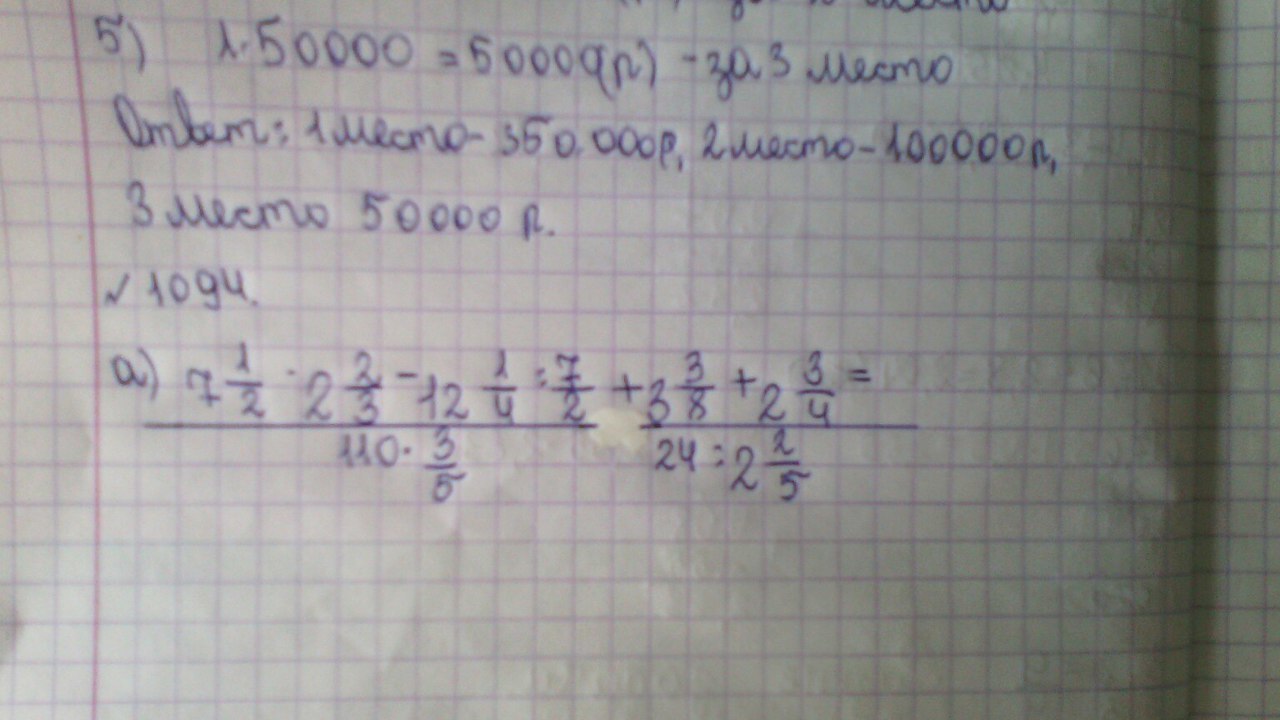 5) 1·50000 = 50000(р) - за 3 место
Ответ: 1 место - 350.000р, 2 место - 100000р,
3 место 50000 р.
√ 1094.
а) 7 1/2 · 2 2/3 - 12 1/4 : 7/2 + 3 3/8 + 2 3/4 =
110 · 3/5 24 : 2 2/5